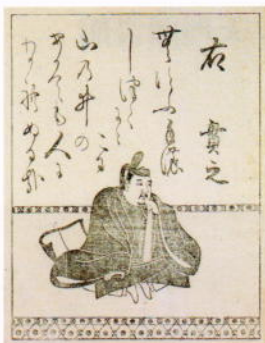 右　貫之
むすふ手の
しつくににこる
山乃井の
あかても人に
わかれぬる哉